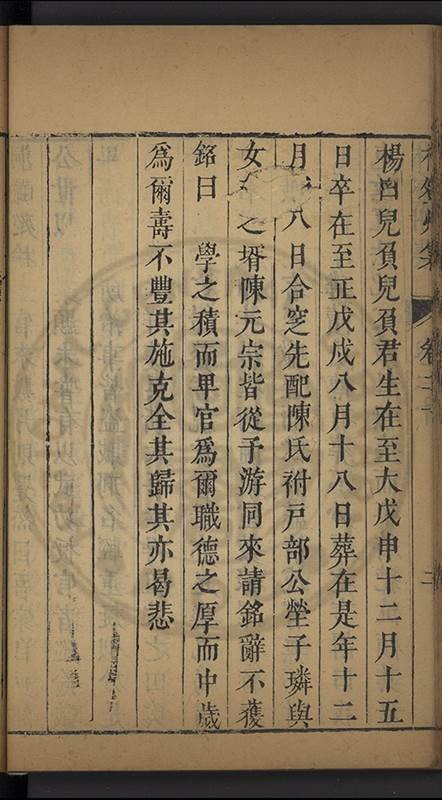 卷二十
楊酉兒貟兒貟君生在至大戊申十二月十五
日卒在至正戊戍八月十八日葬在是年十二
月八日合窆先配陳氏祔戸部公塋子璘與
女之壻陳元宗皆從予游同來請銘辭不獲
銘曰　學之積而卑官爲爾職德之厚而中歲
爲爾壽不豐其施克全其歸其亦曷悲